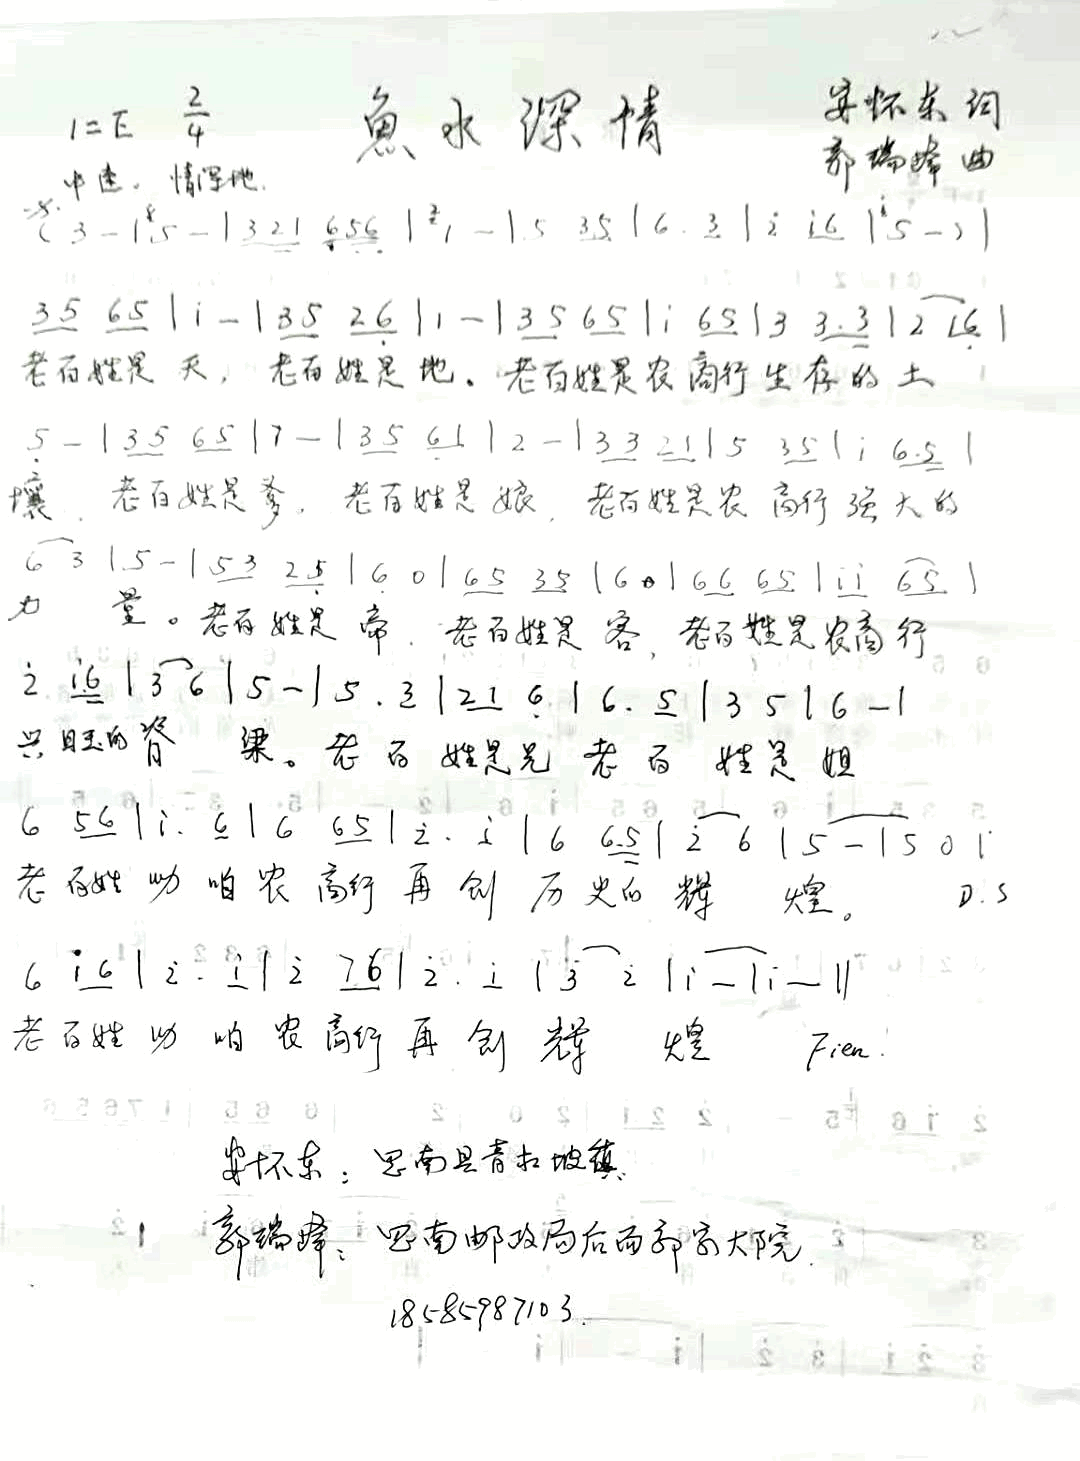 1=E 2/4 魚水深情 安怀东 词
中速。情深地. 郭瑞峰 曲
(3-|5-|321 656|1-|5 35|6.3|2̇ i6|5-)|
35 65|i-|35 26|1-|35 65|i 65|3 3.3|2 16|
老百姓是天，老百姓是地。老百姓是农商行生存的土
5-|35 65|7-|35 61|2-|33 21|5 35|i 6.5|
壤。老百姓是爹，老百姓是娘，老百姓是农商行强大的
6 3|5-|53 25|6 0|65 35|60|66 65|ii 65|
力量。老百姓是帝，老百姓是客，老百姓是农商行
2̇ i6|3 6|5-|5.3|21 6|6.5|35|6-|
兴旺的脊梁。老百姓是兄 老百姓是姐
6 56|i.6|6 65|2̇.i|6 6.5|2̇ 6|5-|50|
老百姓 助咱农商行再创历史的辉煌。 D.S
6 i6|2̇.i|2̇ 76|2̇.i|3̇ 2̇|i-|i-||
老百姓 助咱农商行再创辉煌 Fien.
安怀东：思南县青杠坡镇.
郭瑞峰：思南邮政局后面郭家大院.
18585987103.